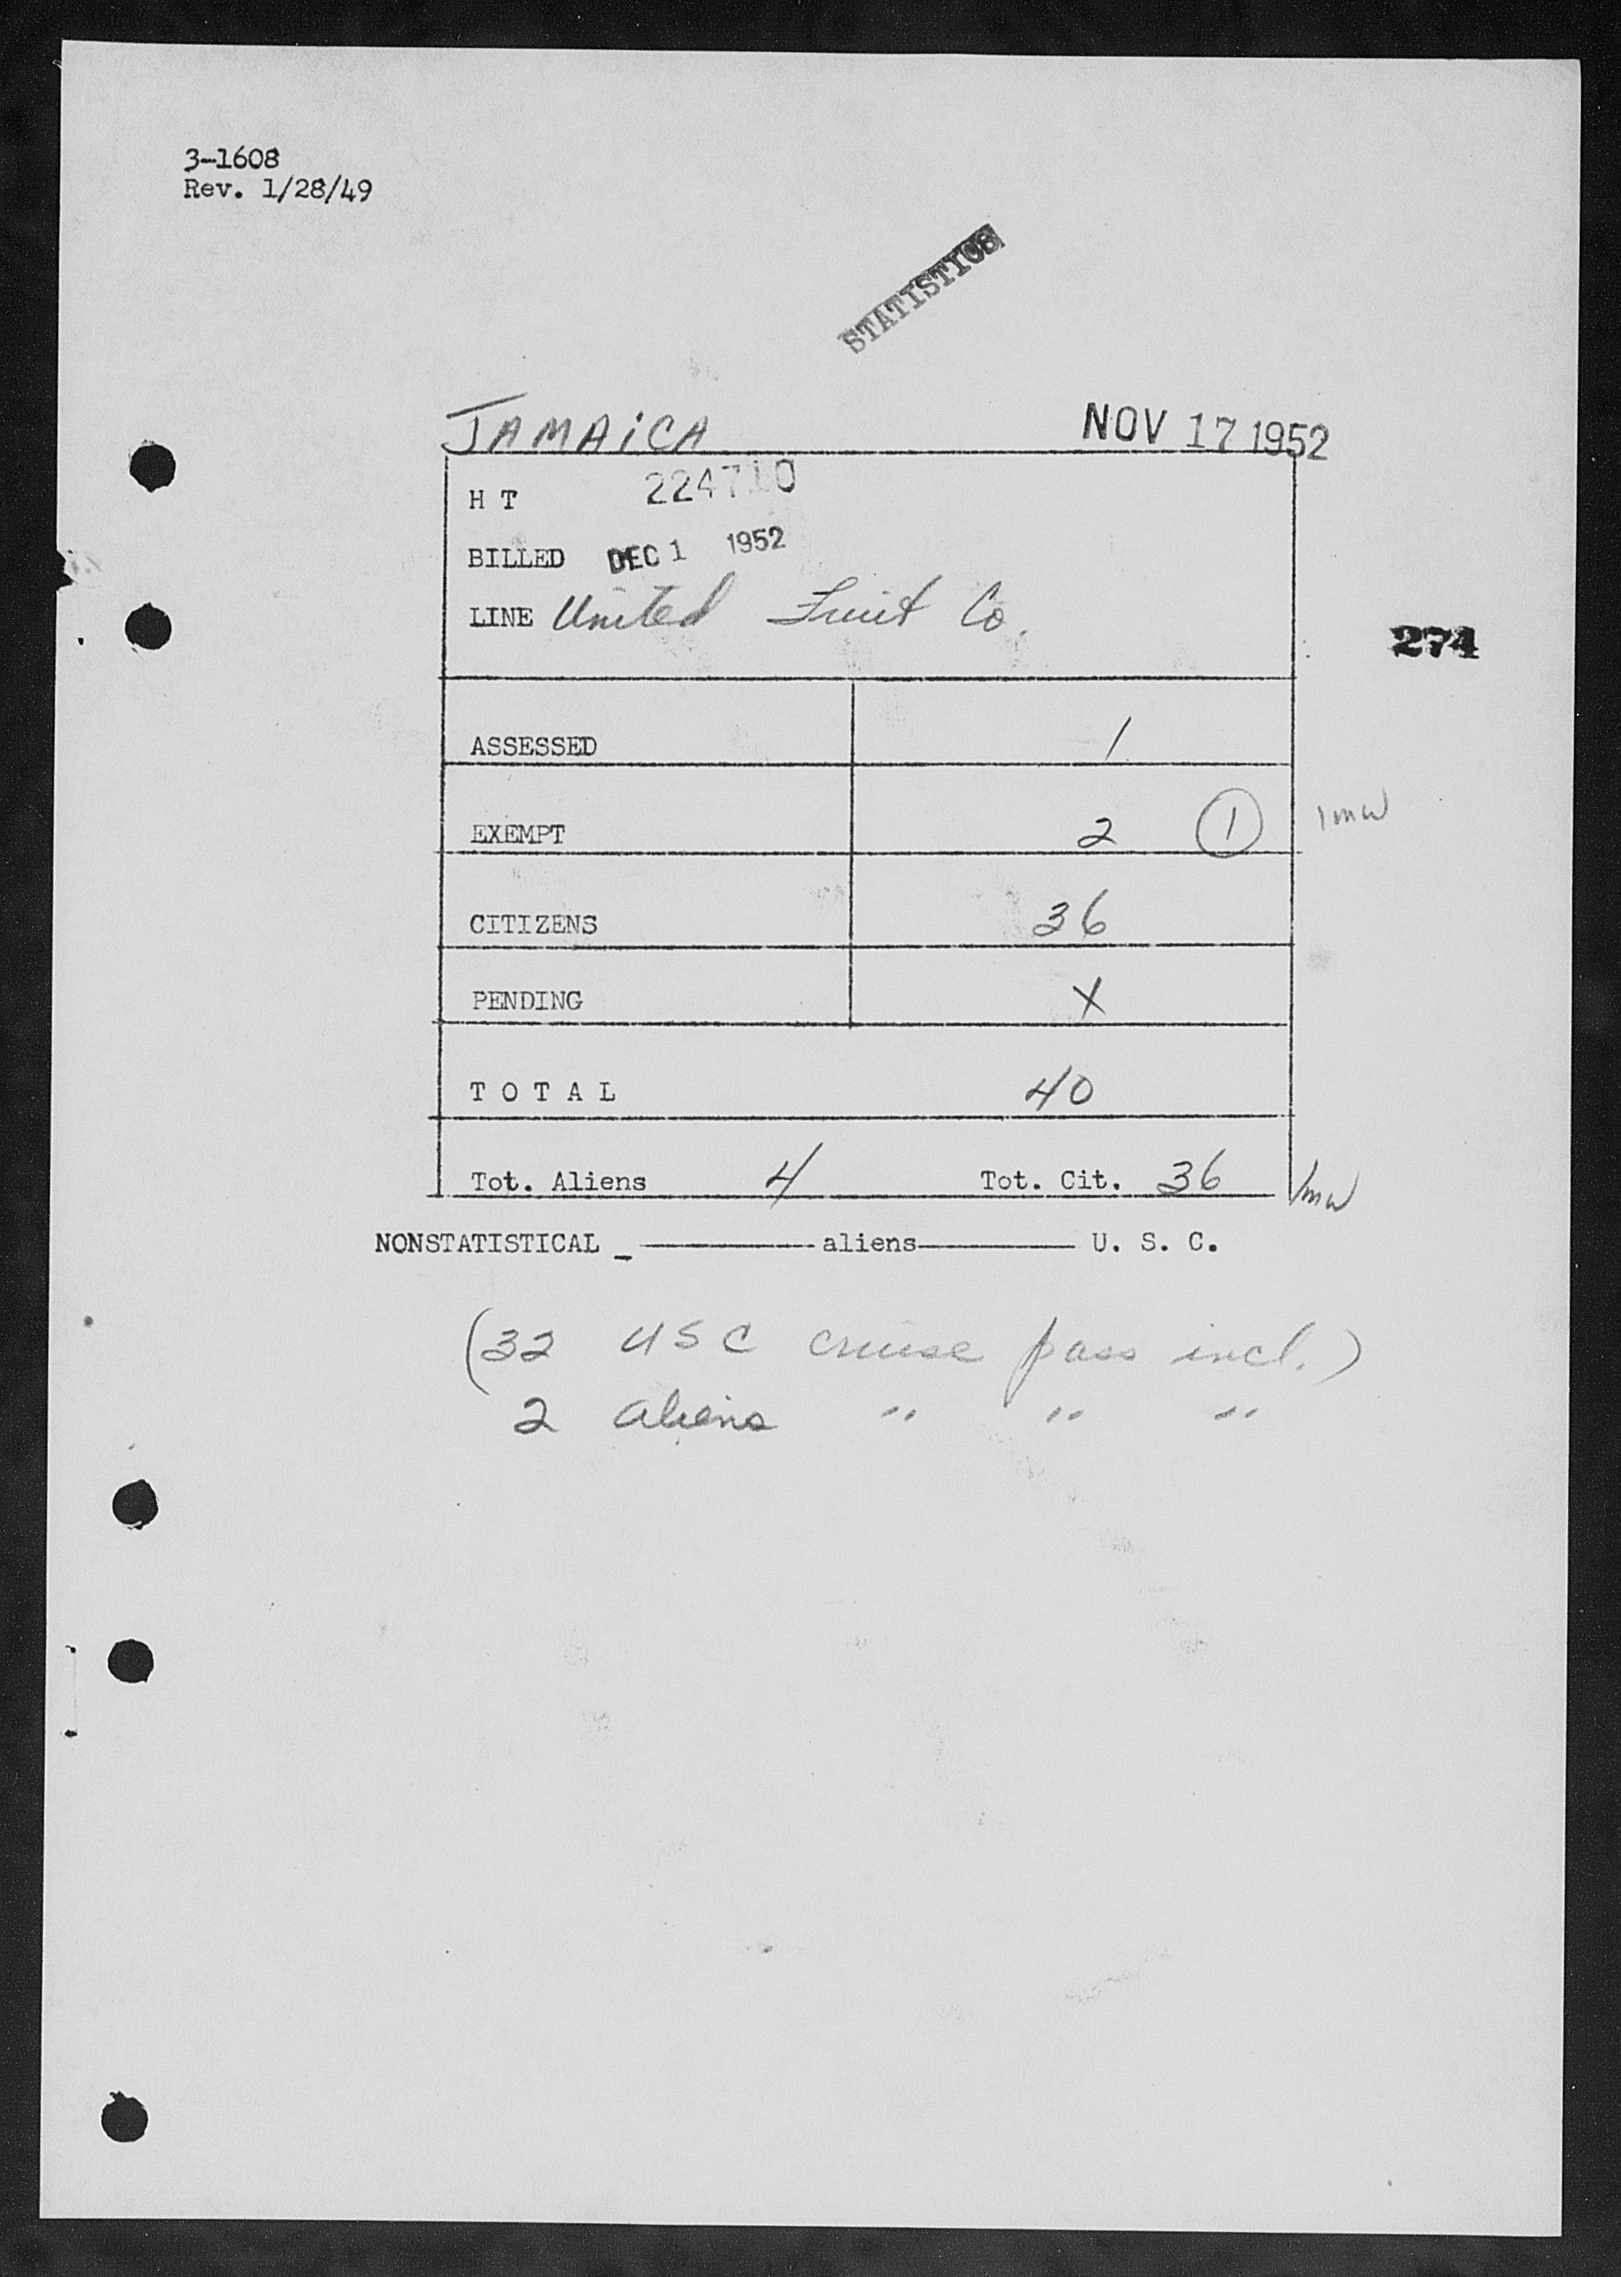 3-1608
Rev. 1/28/49
STATISTICS
JAMAiCA NOV 17 1952
H T 224710
BILLED DEC 1 1952
LINE United Fruit Co.
274
ASSESSED 1
EXEMPT 2 1 1mw
CITIZENS 36
PENDING X
T O T A L 40
Tot. Aliens 4 Tot. Cit. 36 1mw
NONSTATISTICAL _ ———— aliens ———— U. S. C.
(32 USC cruise pass incl.)
2 aliens " " "